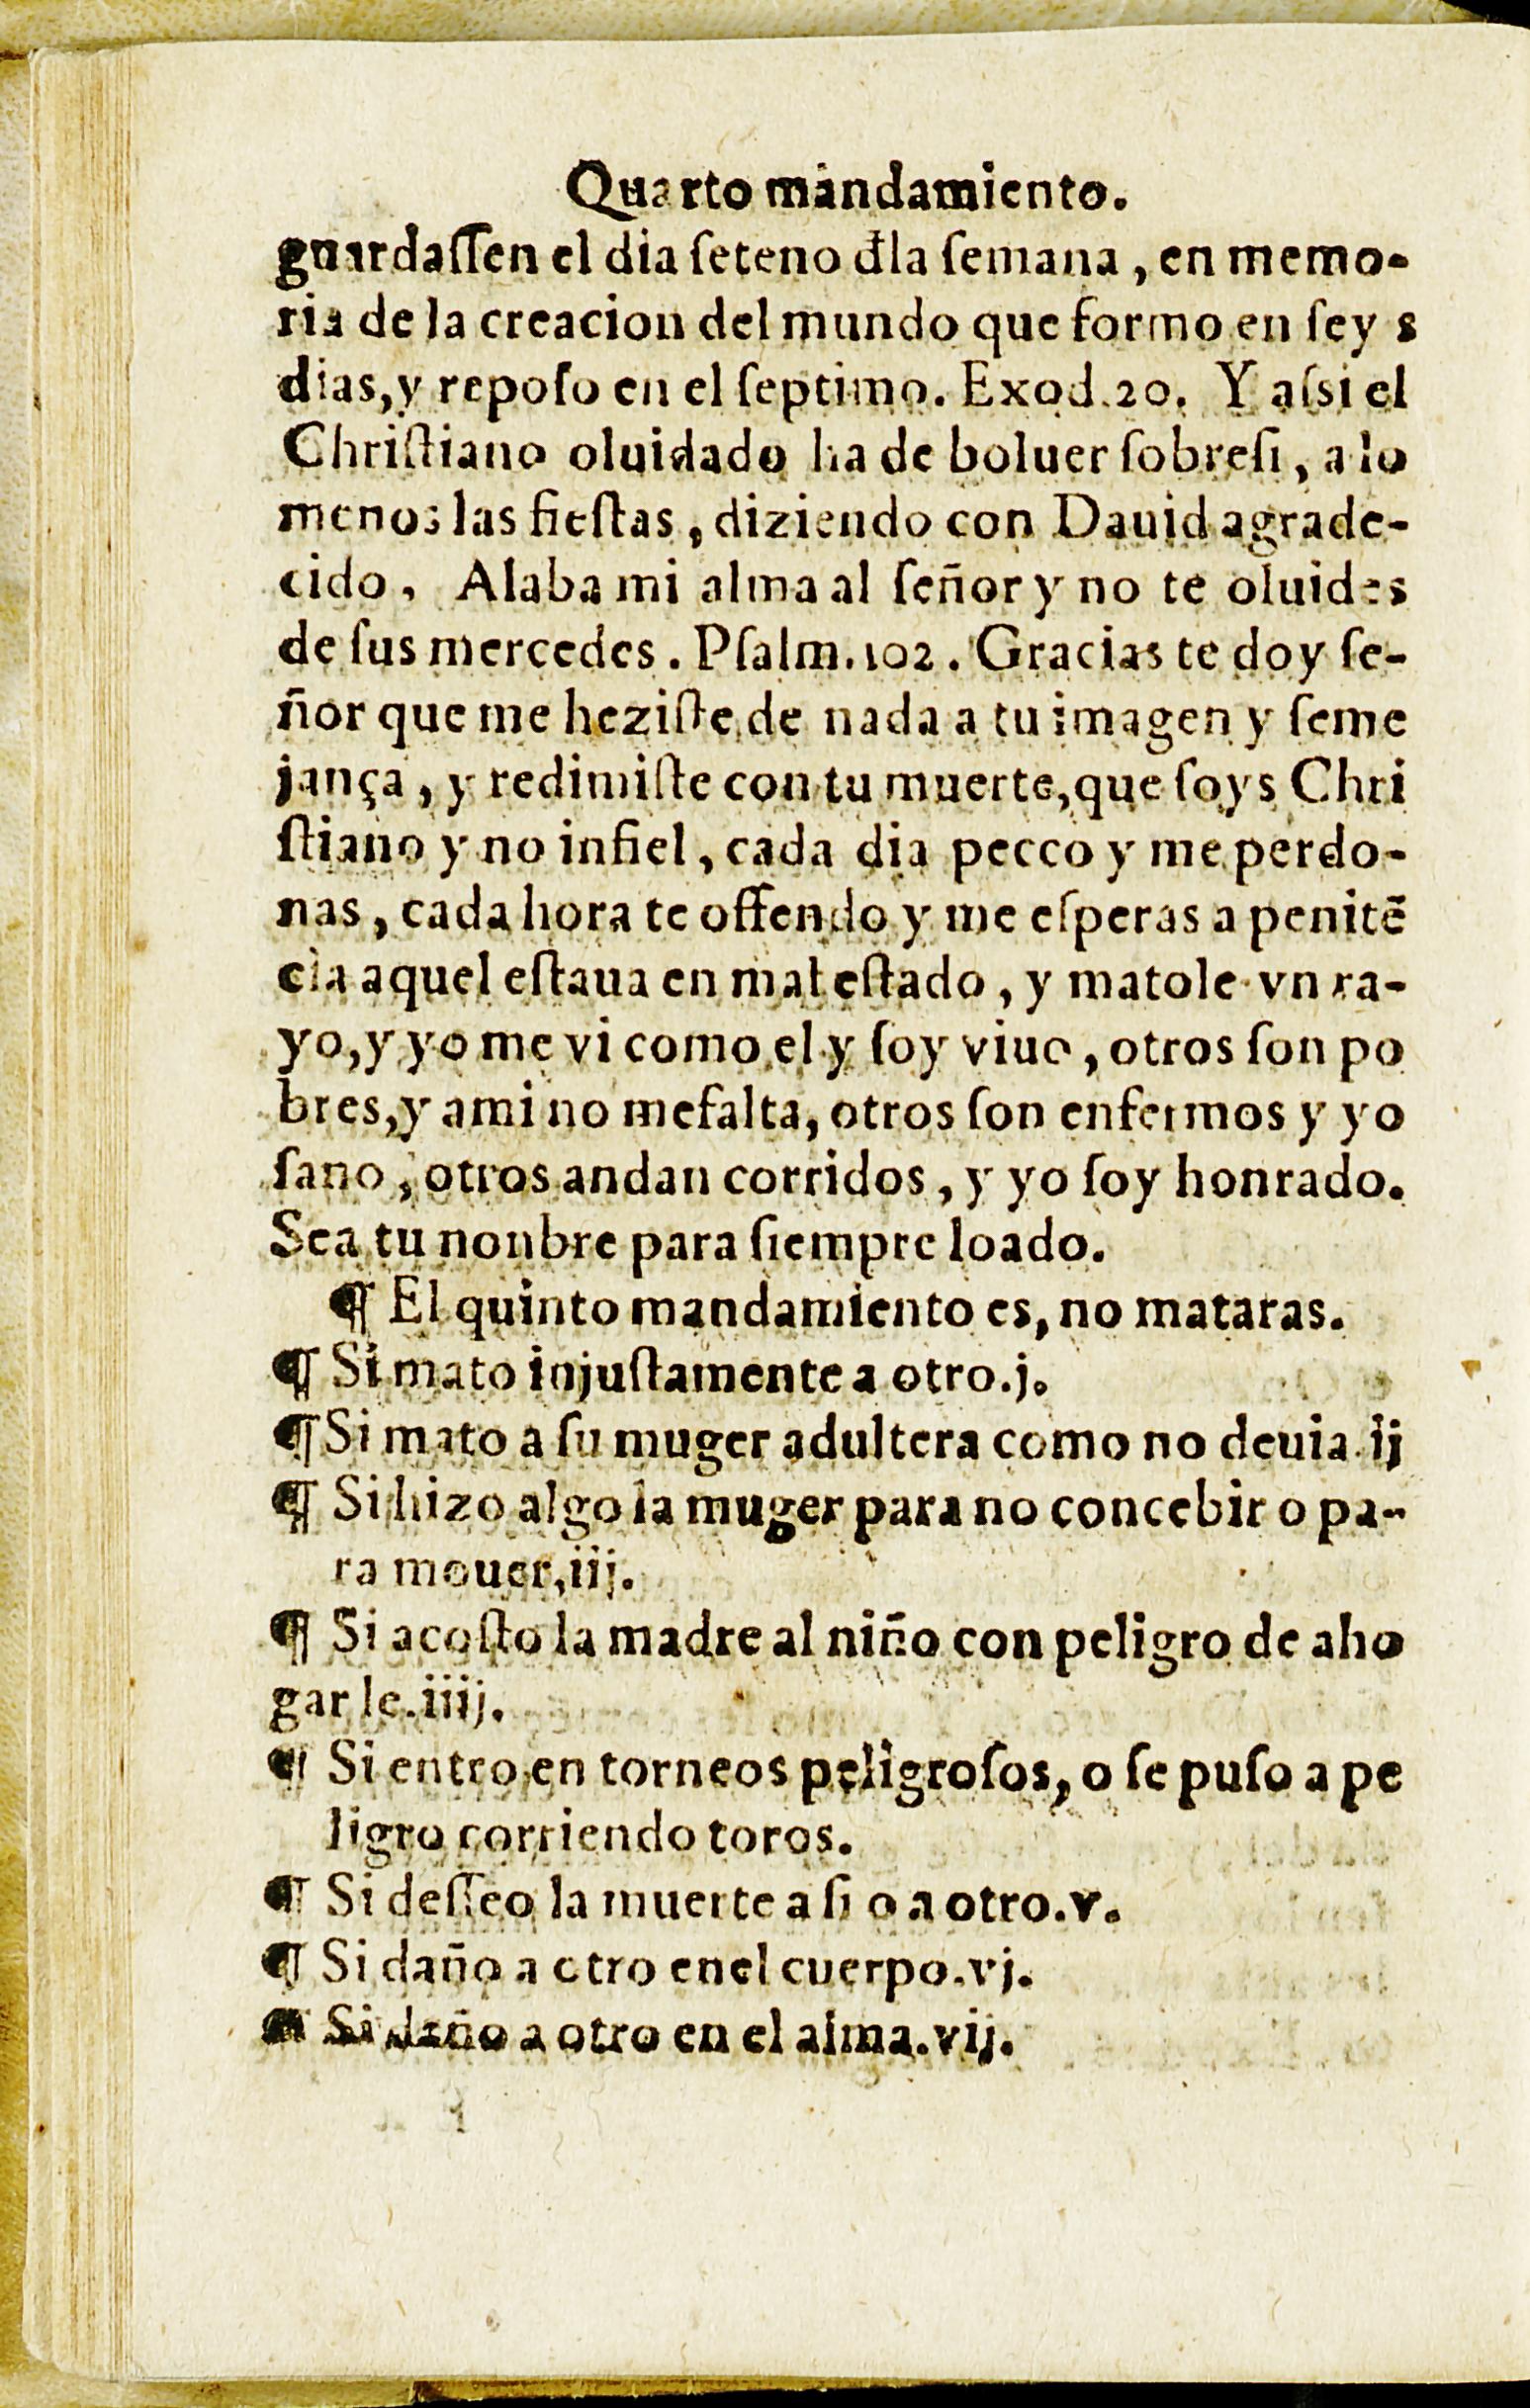 Quarto mandamiento.
guardaſſen el dia ſeteno đla ſemana, en memo-
ria de la creacion del mundo que formo en ſey s
dias, y repoſo en el ſeptimo. Exod.20. Y aſsi el
Chriſtiano oluidado ha de boluer ſobreſi, a lo
menos las fieſtas, diziendo con Dauid agrade-
cido, Alaba mi alma al ſeñor y no te oluides
de ſus mercedes. Pſalm.102. Gracias te doy ſe-
ñor que me heziſte de nada a tu imagen y ſeme
jança, y redimiſte con tu muerte, que ſoys Chri
ſtiano y no infiel, cada dia pecco y me perdo-
nas, cada hora te offendo y me eſperas a penitẽ
cia aquel eſtaua en mal eſtado, y matole vn ra-
yo, y yo me vi como el y ſoy viuo, otros ſon po
bres, y ami no mefalta, otros ſon enfermos y yo
ſano, otros andan corridos, y yo ſoy honrado.
Sea tu nonbre para ſiempre loado.
¶ El quinto mandamiento es, no mataras.
¶ Si mato injuſtamente a otro.j.
¶ Si mato a ſu muger adultera como no deuia.ij
¶ Si hizo algo la muger para no concebir o pa-
ra mouer,iij.
¶ Si acoſto la madre al niño con peligro de aho
gar le.iiij.
¶ Si entro en torneos peligroſos, o ſe puſo a pe
ligro corriendo toros.
¶ Si deſſeo la muerte a ſi o a otro.v.
¶ Si daño a otro enel cuerpo.vj.
¶ Si daño a otro en el alma.vij.